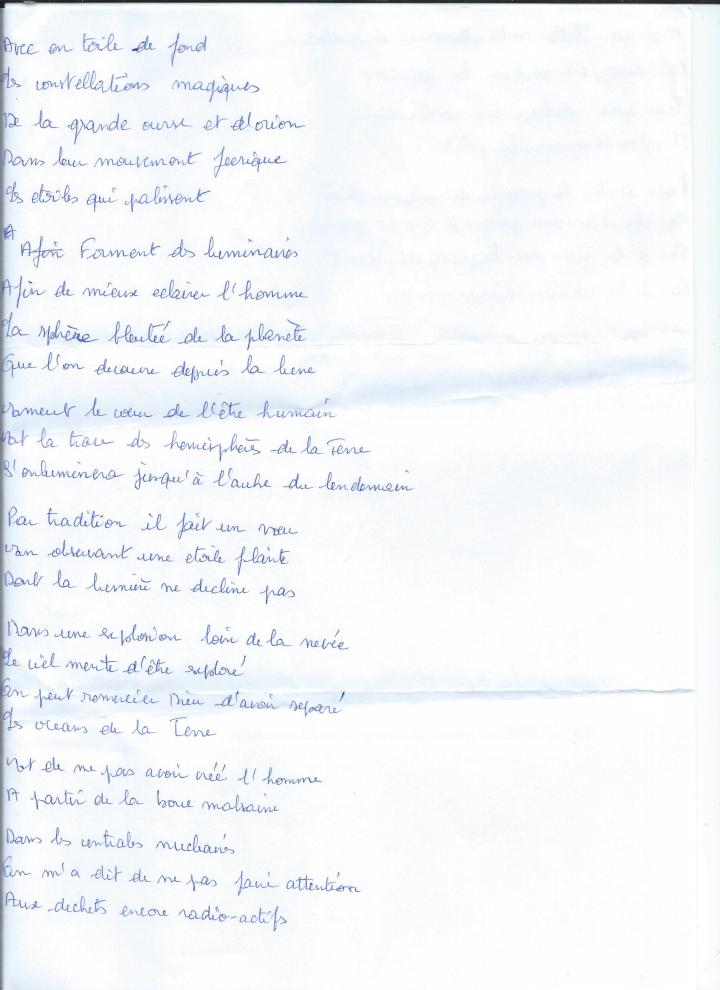 Avec en toile de fond
Les constellations magiques
De la grande ourse et d'orion
Dans leur mouvement feerique
Les etoiles qui palissent
A
Afin Forment des luminaires
Afin de mieux eclairer l'homme
La sphère bleutée de la planète
Que l'on decouvre depuis la lune
le cœur de l'être humain
Et la trace des hemispheres de la Terre
S'enluminera jusqu'à l'aube du lendemain
Par tradition il fait un vœu
En observant une etoile filante
Dont la lumière ne decline pas
Dans une explosion loin de la nuée
Le ciel merite d'être exploré
On peut remercier Dieu d'avoir separé
Les oceans de la Terre
Et de ne pas avoir créé l'homme
A partir de la boue malsaine
Dans les centrales nucleaires
On m'a dit de ne pas faire attention
Aux dechets encore radio-actifs